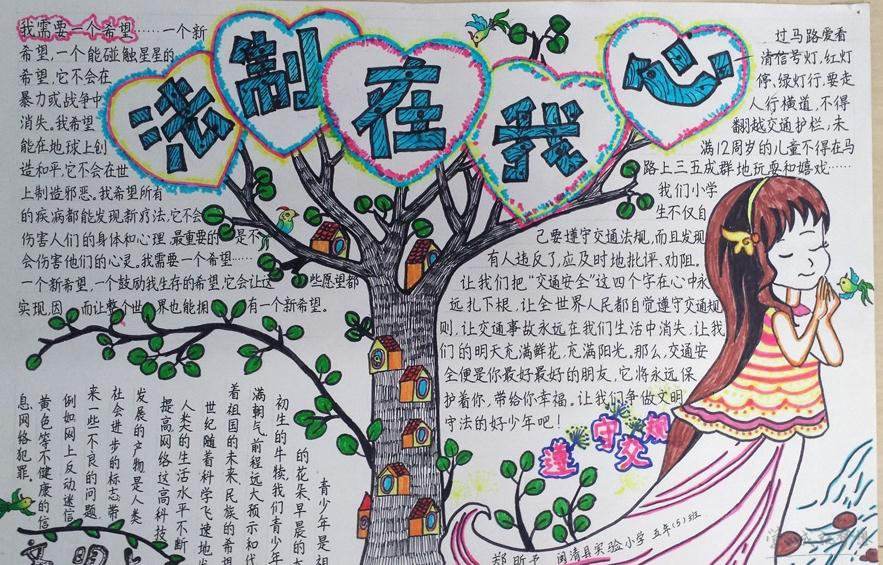 法制在我心
我需要一个希望……一个新
希望,一个能碰触星星的
希望,它不会在
暴力或战争中
消失。我希望
能在地球上创
造和平,它不会在世
上制造邪恶。我希望所有
的疾病都能发现新疗法,它不会
伤害人们的身体和心理,最重要的是不
会伤害他们的心灵。我需要一个希望……
一个新希望,一个鼓励我生存的希望,它会让这些愿望都
实现,因而让整个世界也能拥有一个新希望。
过马路要看
清信号灯,红灯
停,绿灯行,要走
人行横道,不得
翻越交通护栏,未
满12周岁的儿童不得在马
路上三五成群地玩耍和嬉戏……
我们小学
生不仅自
己要遵守交通法规,而且发现
有人违反了,应及时地批评、劝阻。
让我们把“交通安全”这四个字在心中永
远扎下根,让全世界人民都自觉遵守交通规
则,让交通事故永远在我们生活中消失,让我
们的明天充满鲜花,充满阳光。那么,交通安
全便是你最好最好的朋友,它将永远保
护着你,带给你幸福,让我们争做文明
守法的好少年吧!
遵守交规
青少年是祖
的花朵早晨的太
初生的牛犊,我们青少年
满朝气前程远大预示和代
着祖国的未来、民族的希望
世纪随着科学飞速地发
人类的生活水平不断
提高网络这高科技
发展的产物是人类
社会进步的标志带
来一些不良的问题
例如网上反动迷信
黄色等不健康的信
息网络犯罪。
闽清县实验小学 五年(5)班